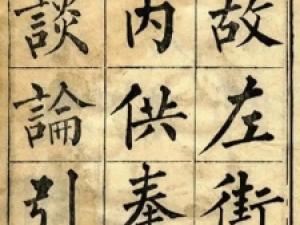 故左街
内供奉
談論引